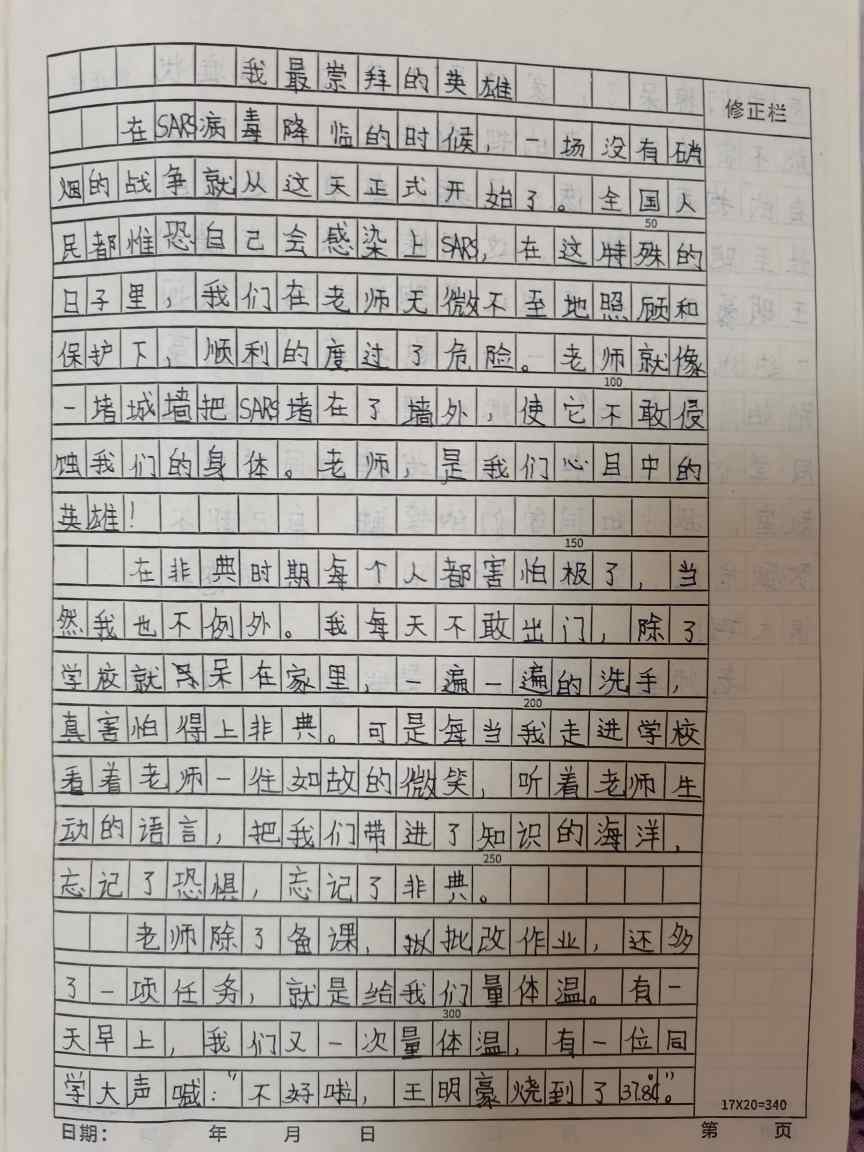 我最崇拜的英雄
修正栏
在SARS病毒降临的时候，一场没有硝
烟的战争就从这天正式开始了。全国人
50
民都惟恐自己会感染上SARS，在这特殊的
日子里，我们在老师无微不至地照顾和
保护下，顺利的度过了危险。老师就像
100
一堵城墙把SARS堵在了墙外，使它不敢侵
蚀我们的身体。老师，是我们心目中的
英雄！
150
在非典时期每个人都害怕极了，当
然我也不例外。我每天不敢出门，除了
学校就呆在家里，一遍一遍的洗手，
200
真害怕得上非典。可是每当我走进学校
看着老师一往如故的微笑，听着老师生
动的语言，把我们带进了知识的海洋，
250
忘记了恐惧，忘记了非典。
老师除了备课，拟批改作业，还多
了一项任务，就是给我们量体温。有一
300
天早上，我们又一次量体温，有一位同
学大声喊：“不好啦，王明豪烧到了37.8℃。”
17X20=340
日期： 年 月 日 第 页